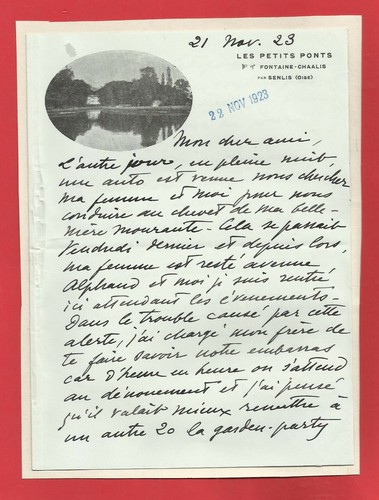 21 Nov. 23
LES PETITS PONTS
FONTAINE-CHAALIS
PAR SENLIS (OISE)
22 NOV 1923
Mon cher ami,
L'autre jour, en pleine nuit,
une auto est venue nous chercher
ma femme et moi pour nous
conduire au chevet de ma belle-
mère mourante - Cela se passait
Vendredi dernier et depuis lors,
ma femme est resté avenue
Alphand et moi je suis rentré
ici attendant les évènements -
Dans le trouble causé par cette
alerte, j'ai chargé mon frère de
te faire savoir notre embarras
car d'heure en heure on s'attend
au dénouement et j'ai pensé
qu'il valait mieux remettre à
un autre 20 la garden-party